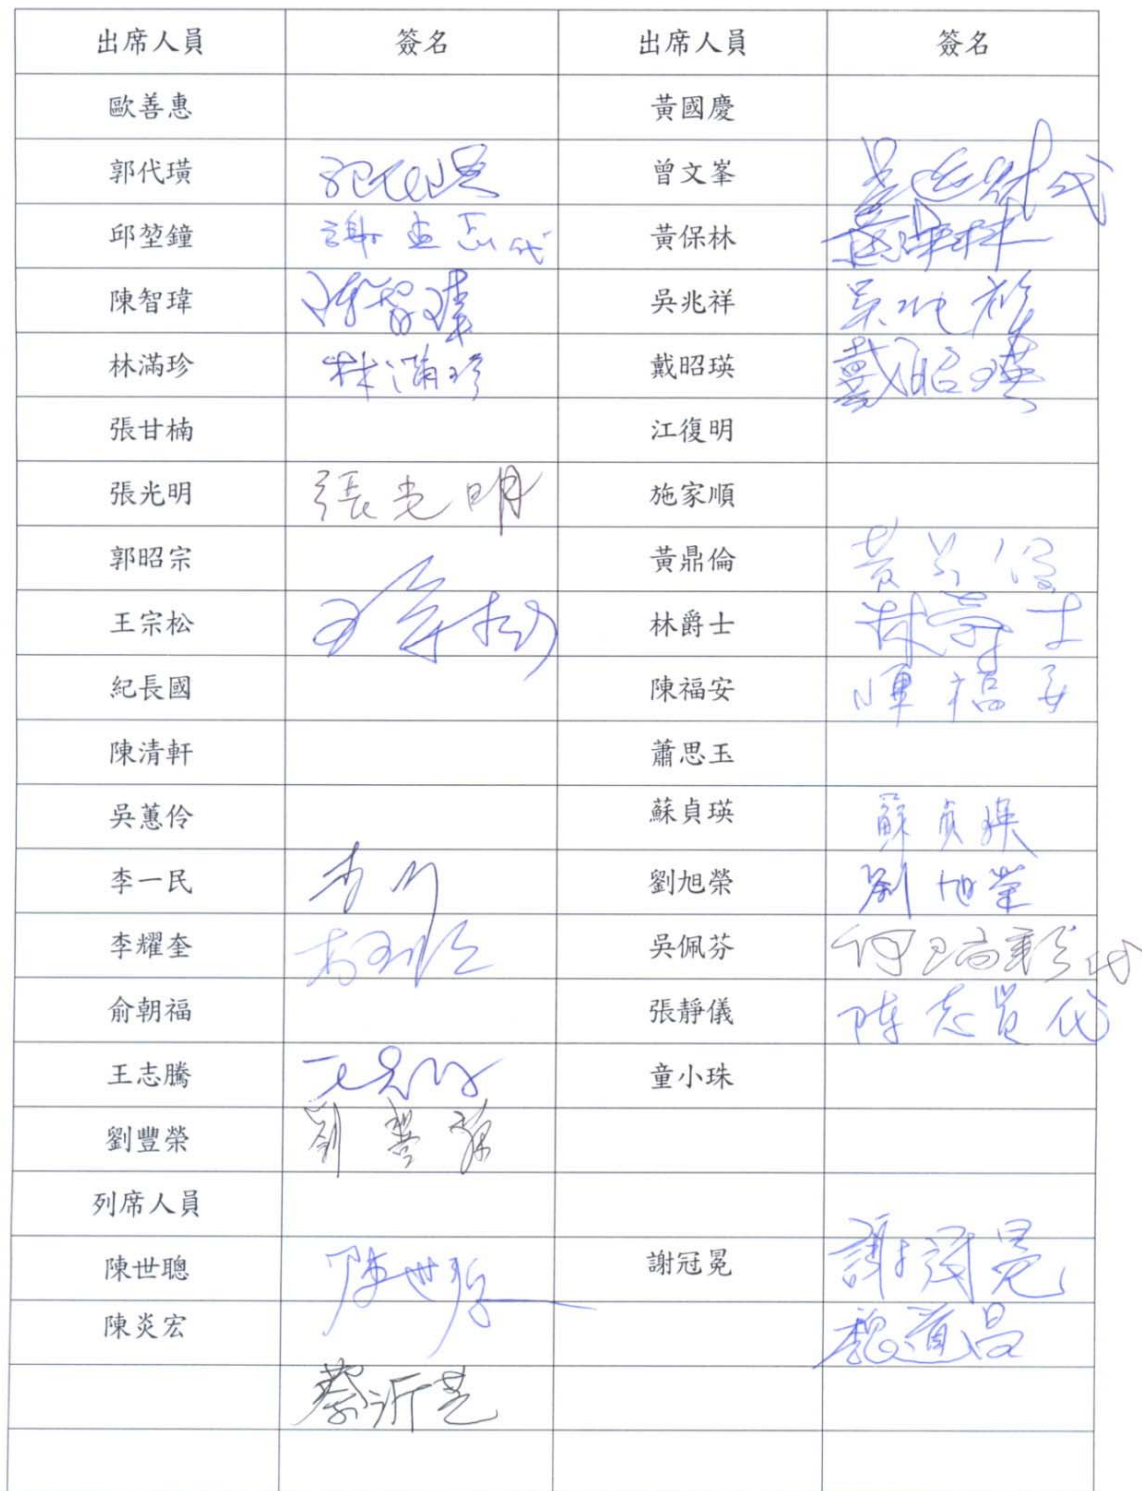 出席人員 簽名 出席人員 簽名
歐善惠 黃國慶
郭代璜 曾文峯 代
邱堃鐘 謝 代 黃保林 黃保林
陳智瑋 陳智瑋 吳兆祥 吳兆祥
林滿珍 林滿珍 戴昭瑛 戴昭瑛
張甘楠 江復明
張光明 張光明 施家順
郭昭宗 黃鼎倫 黃
王宗松 王宗松 林爵士 林爵士
紀長國 陳福安 陳福安
陳清軒 蕭思玉
吳蕙伶 蘇貞瑛 蘇貞瑛
李一民 李 劉旭榮 劉旭榮
李耀奎 吳佩芬 何 代
俞朝福 張靜儀 陳志 代
王志騰 王 童小珠
劉豐榮 劉
列席人員
陳世聰 陳世聰 謝冠冕 謝冠冕
陳炎宏 魏道昌
蔡沂芝